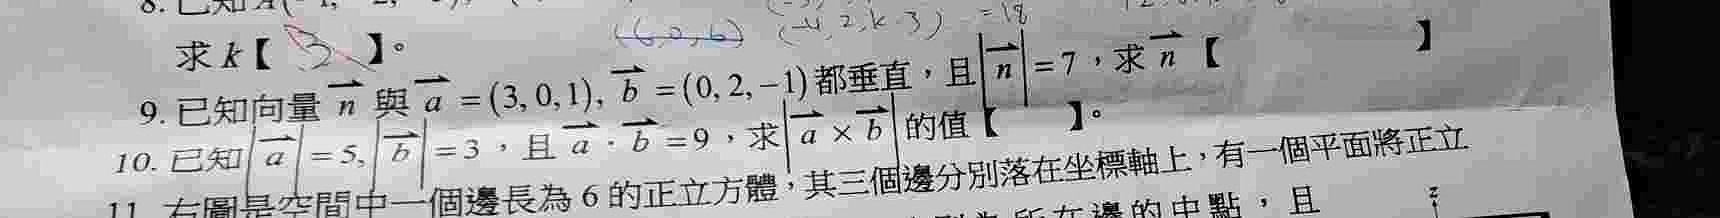 8. 已知 A(-1, -2,
= 18
(6, 2, 6) (-4, 2, k-3)
求 k【 3 】。
9. 已知向量 n⃗ 與 a⃗ = (3, 0, 1), b⃗ = (0, 2, −1) 都垂直，且 |n⃗| = 7，求 n⃗【 】
10. 已知 |a⃗| = 5, |b⃗| = 3，且 a⃗ · b⃗ = 9，求 |a⃗ × b⃗| 的值【 】。
11. 右圖是空間中一個邊長為 6 的正立方體，其三個邊分別落在坐標軸上，有一個平面將正立
所在邊的中點，且
z